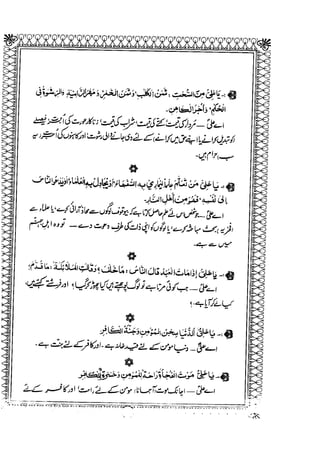 ۱- يَا عَلِيُّ مِنَ السُّحْتِ ثَمَنُ الْكَلْبِ وَثَمَنُ الْخَمْرِ وَمَهْرُ الزَّانِيَةِ وَالرِّشْوَةُ فِي
الْحُكْمِ وَأَجْرُ الْكَاهِنِ.
اے علیؑ — مردار کی قیمت، کتے کی قیمت، شراب کی قیمت، زناکار عورت کی اجرت، فیصلے
رشوت اور کاہنوں کی اجرت یہ
سب حرام ہیں۔
يَا عَلِيُّ مَنْ تَعَلَّمَ عِلْمًا لِيُمَارِيَ بِهِ السُّفَهَاءَ أَوْ يُجَادِلَ بِهِ الْعُلَمَاءَ أَوْ لِيَدْعُوَ النَّاسَ
إِلَى نَفْسِهِ فَهُوَ مِنْ أَهْلِ النَّارِ.
اے علیؑ — جو شخص اس لئے علم حاصل کرتا ہے کہ بیوقوف لوگوں سے کرے یا علماء سے
یا لوگوں کو اپنی ذات کی طرف دعوت دے — تو وہ اہل جہنم
میں سے ہے۔
يَا عَلِيُّ إِذَا مَاتَ الْعَبْدُ قَالَ النَّاسُ: مَا خَلَّفَ؟ وَقَالَتِ الْمَلَائِكَةُ: مَا قَدَّمَ؟
اے علیؑ — جب کوئی مرتا ہے تو لوگ پوچھتے ہیں کیا چھوڑ گیا؟ اور فرشتے کہتے ہیں،
کیا لے کر آیا ہے۔؟
۱- يَا عَلِيُّ الدُّنْيَا سِجْنُ الْمُؤْمِنِ وَجَنَّةُ الْكَافِرِ
اے علیؑ — دنیا مومن کے لئے قید خانہ ہے۔ اور کافر کے لئے جنت ہے۔
يَا عَلِيُّ مَوْتُ الْفَجْأَةِ رَاحَةٌ لِلْمُؤْمِنِ وَحَسْرَةٌ لِلْكَافِرِ
اے علیؑ — اچانک موت آجانا، مومن کے لئے راحت اور کافر کے لئے